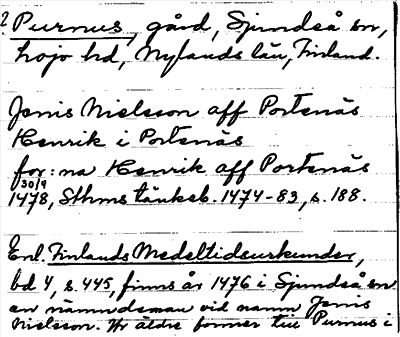 ? Purnus, gård, Sjundeå sn,
Lojo hd, Nylands län, Finland.
Jenis Nielsson aff Portenäs
Henrik i Portenäs
for:na Henrik aff Portenäs
30/9
1478, Sthms tänkeb. 1474-83, s. 188.
Enl. Finlands Medeltidsurkunder,
bd 4, s. 445, finns år 1476 i Sjundeå sn
en nämndeman vid namn Jenis
Nielsson. Hr äldre former till Purnus i